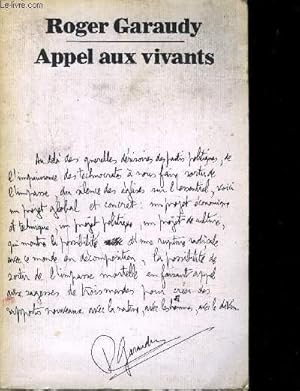 Roger Garaudy
Appel aux vivants
Au delà des querelles dérisoires des partis politiques, de
l'impuissance des technocrates à nous faire sortir de
l'impasse, du silence des églises sur l'essentiel, voici
un projet global et concret : un projet économique
et technique, un projet politique, un projet de culture,
qui montre la possibilité d'une rupture radicale
avec le monde en décomposition, la possibilité de
sortir de l'impasse mortelle en faisant appel
aux sagesses de trois mondes pour créer des
rapports nouveaux avec la nature, avec les hommes, avec le divin.
R. Garaudy